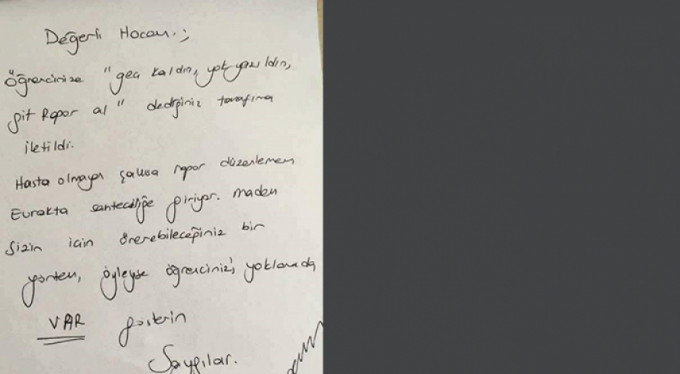 Değerli Hocam.;
Öğrencinize "geç kaldın, yok yazıldın,
git Rapor al" dediğiniz tarafıma
iletildi.
Hasta olmayan şahısa rapor düzenlemem
Evrakta sahteciliğe giriyor. madem
sizin için önerebileceğiniz bir
yöntem, öyleyse öğrencinizi yoklamada
VAR gösterin
Saygılar.